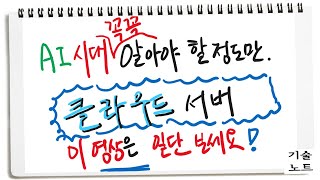 AI 시대 꼭꼭 알아야 할 정도만.
클라우드 서버
이 영상은 일단 보세요!
기술
노트